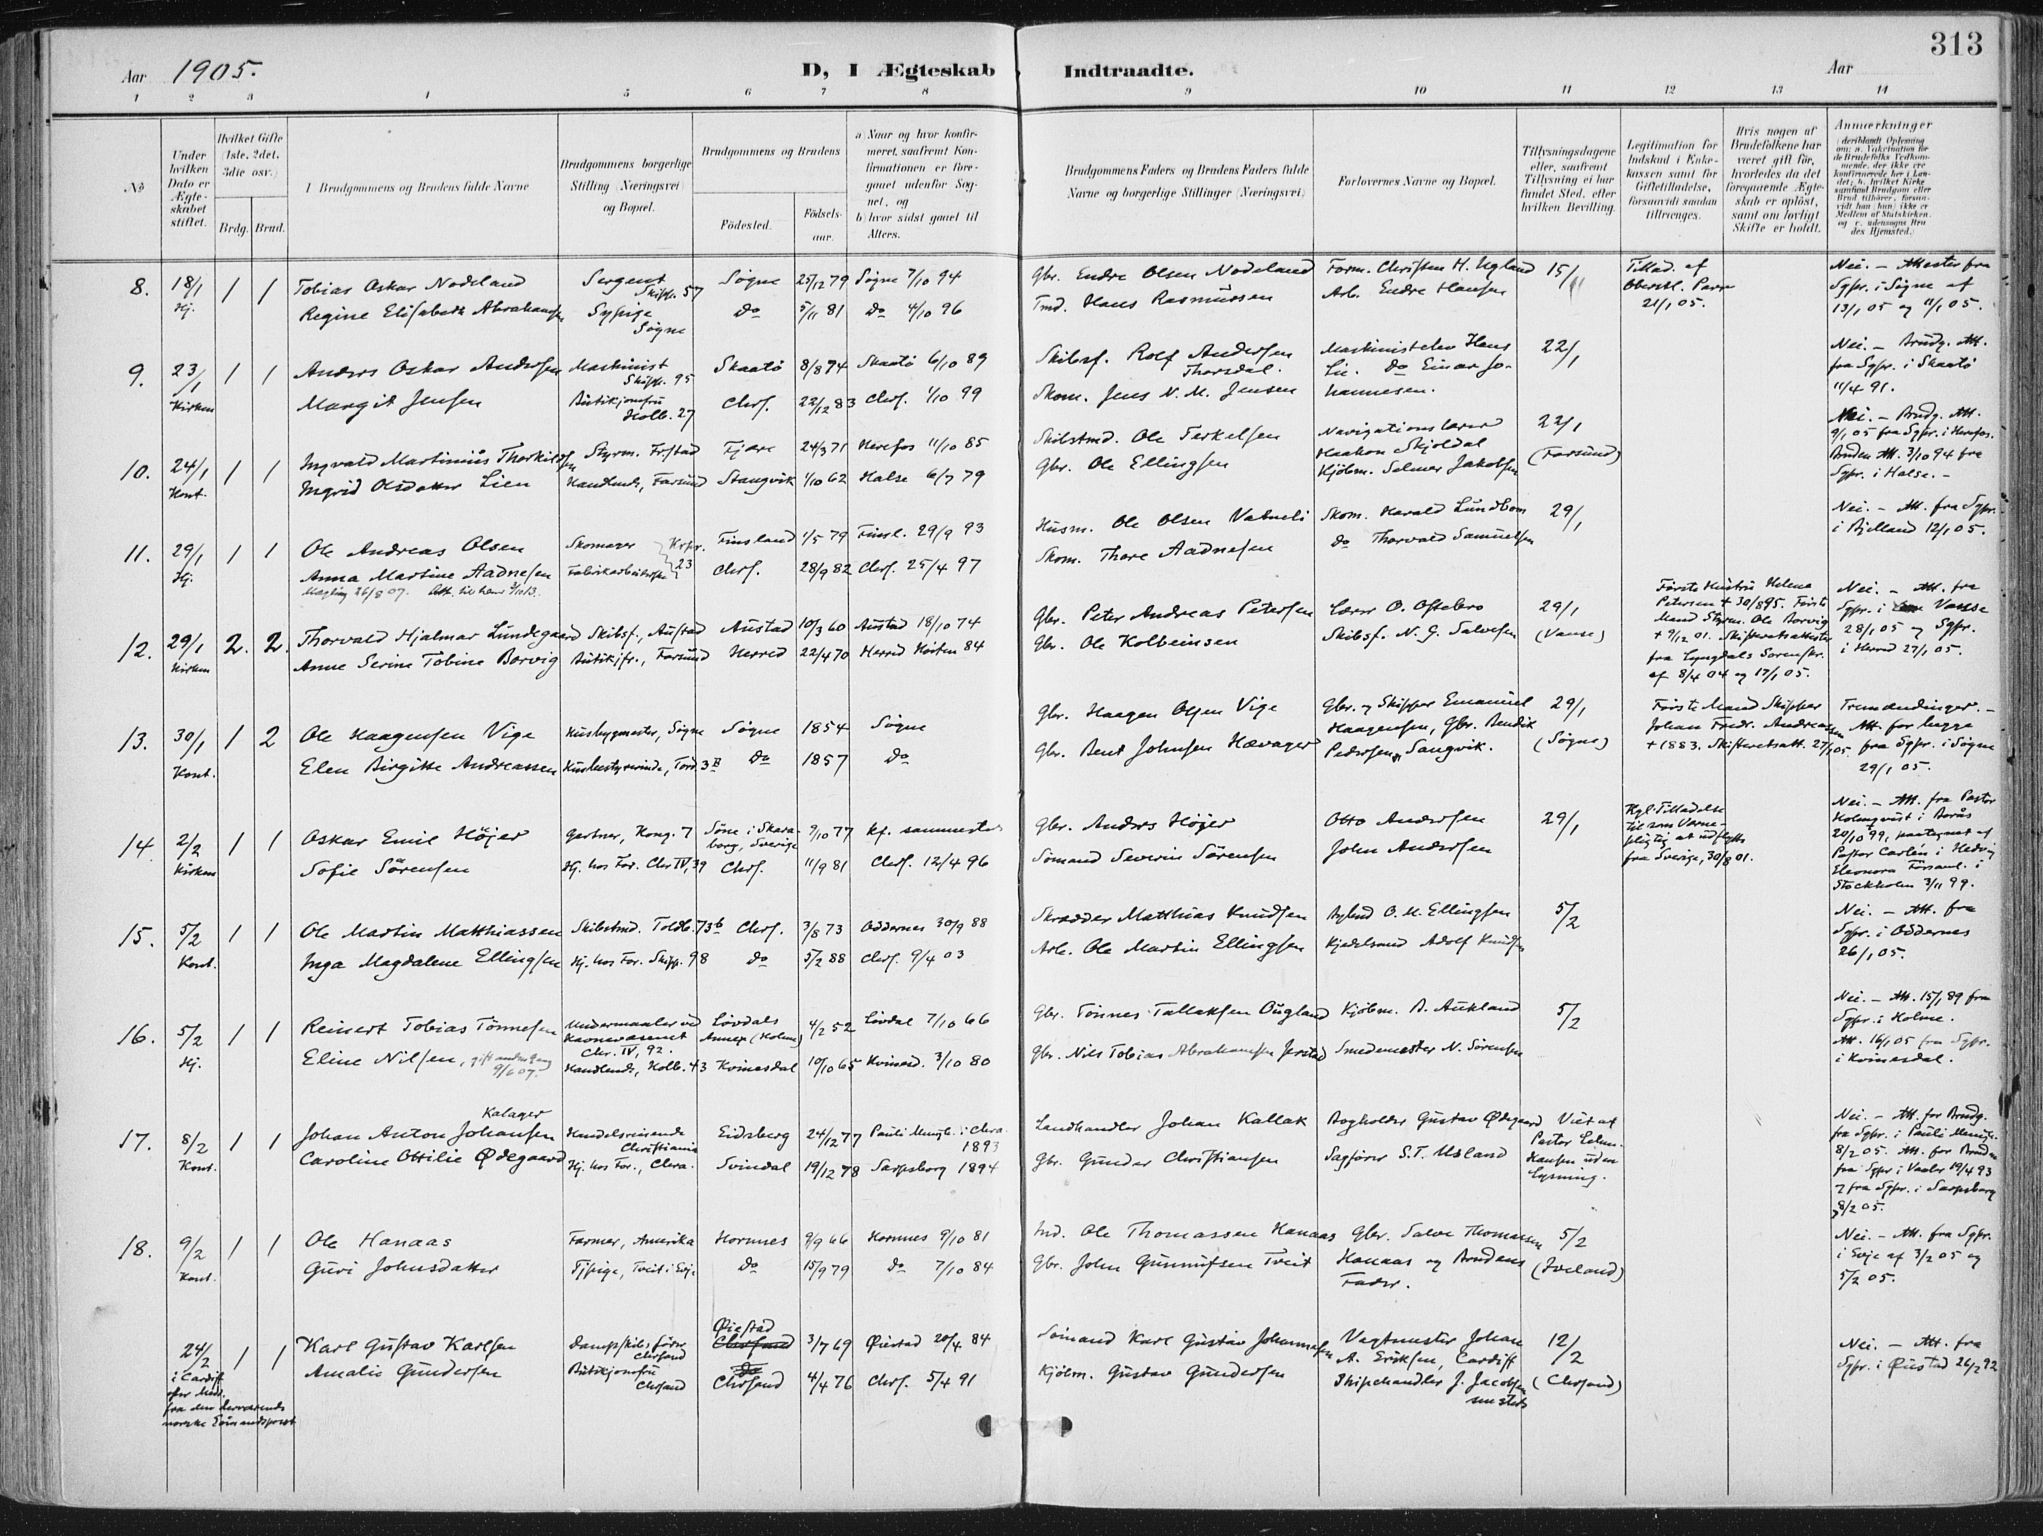 313
Aar 1905.
D, I Ægteskab Indtraadte.
Aar
1 2 3 4 5 6 7 8 9 10 11 12 13 14
No
Under hvilken Dato er Ægteskabet stiftet.
Hvilket Gifte (1ste, 2det, 3die osv.)
Brdg. Brud.
Brudgommens og Brudens fulde Navne
Brudgommens borgerlige Stilling (Næringsvei) og Bopæl.
Brudgommens og Brudens
Födested.
Födsels-aar.
a) Naar og hvor konfirmeret, saafremt Konfirmationen er foregaaet udenfor Sognet, og
b) hvor sidst gaaet til Alters.
Brudgommens Faders og Brudens Faders fulde Navne og borgerlige Stillinger (Næringsvei)
Forlovernes Navne og Bopæl.
Tillysningsdagene eller, saafremt Tillysning ei har fundet Sted, efter hvilken Bevilling.
Legitimation for Indskud i Enkekassen samt for Giftetilladelse, forsaavidt saadan tiltrænges.
Hvis nogen af Brudefolkene har været gift før, hvorledes da det foregaaende Ægteskab er oplöst, samt om lovligt Skifte er holdt.
Anmærkninger
8. 18/1 Kj. 1 1
Tobias Oskar Nodeland Sergent Skippr. 57 Søgne 25/12 79 Søgne 7/10 94
Regine Elisabeth Abrahamsen Sypige Søgne Do 5/11 81 Do 4/10 96
Gbr. Endre Olsen Nodeland Form. Christen H. Ugland 15/1
Tmd. Hans Rasmussen Arb. Endre Hansen
Tillad. af Oberstl. 21/1 05.
Nei. – Attester fra Sgpr. i Søgne af 13/1 05 og 11/1 05.
9. 23/1 Kirken 1 1
Anders Oskar Andersen Maskinist Skippr. 95 Skaatö 8/8 74 Skaatö 6/10 89
Margit Jensen Butikjomfru Holb. 27 Chrs. 22/12 83 Chrs. 1/10 99
Skibsf. Rolf Andersen Thorsdal. Maskinistelev Hans Lie. Do Einar Johannesen. 22/1
Skom. Jens N. M. Jensen
Nei. – Brudg. Att. fra Sgpr. i Skaatö 11/4 91.
10. 24/1 Kont. 1 1
Ingvald Martinius Thorkildsen Styrm. Frstad Fjære 24/3 71 Herefos 11/10 85
Ingrid Olsdatter Lien Handlende, Farsund Stangvik 1/10 62 Halse 6/7 79
Skibstmd. Ole Terkelsen Navigationslærer Haakon Skjoldal 22/1
Gbr. Ole Ellingsen Kjöbm. Selmer Jakobsen (Farsund)
Nei. – Brudg. Att. 9/1 05 fra Sgpr. i Herefos. Bruden Att. 3/10 94 fra Sgpr. i Halse. –
11. 29/1 Kj. 1 1
Ole Andreas Olsen Skomager Finsland 1/5 79 Finsl. 29/9 93
Anna Martine Aadnesen Fabrikarbeiderske 23 Chrs. 28/9 82 Chrs. 25/4 97
Husm. Ole Olsen Vatneli Skom. Harald Lundbom 29/1
Skom. Thore Aadnesen Do Thorvald Samuelsen
Nei. – Att. fra Sgpr. i Bjelland 12/1 05.
12. 29/1 Kirken 2. 2.
Thorvald Hjalmar Lundegaard Skibsf., Austad Austad 10/3 60 Austad 18/10 74
Anne Serine Tobine Borvig Butikjfr., Farsund Herred 22/4 70 Herred Høsten 84
Gbr. Peter Andreas Petersen Lærer O. Oftebro 29/1
Gbr. Ole Kolbeinsen Skibsf. N. G. Salvesen (Vanse)
Første Hustru Helene Petersen + 30/8 95. Første Mand Styrm. Ole Borvig + 9/12 01. Skifteretsattester fra Lyngdals Sorenskr. af 8/4 04 og 17/1 05.
Nei. – Att. fra Sgpr. i Vanse 28/1 05 og Sgpr. i Herred 27/1 05.
13. 30/1 Kont. 1 2
Ole Haagensen Vige Husbygmester, Søgne Søgne 1854 Søgne
Elen Birgitte Andreassen Husbestyrerinde, Tord. 3B Do 1857 Do
Gbr. Haagen Olsen Vige Gbr. og Skipper Emanuel Haagensen, Gbr. Bendik Pedersen, Sangvik. 29/1
Gbr. Bent Johnsen Hævager (Søgne)
Første Mand Skipper Johan Fredr. Andreassen + 1883. Skifteretsatt. 27/1 05
Tremændinger. – Att. for begge fra Sgpr. i Søgne 29/1 05.
14 2/2 Kirken 1 1
Oskar Emil Höjer Gartner, Kong. 7 Söne i Skaraborg, Sverige 9/10 77 kf. sammesteds
Sofie Sörensen Hj. hos For. Chr IV, 39 Chrs. 11/9 81 Chrs. 12/4 96
Gbr. Anders Höjer Otto Andersen 29/1
Sömand Severin Sörensen John Andersen
Kgl. Tilladelse til som Værnepligtig at udflytte fra Sverige, 30/8 01.
Nei. – Att. fra Pastor Holmqvist i Borås 20/10 99, paategnet af Pastor Carlén i Hedvig Eleonora Församl. i Stockholm 3/11 99.
15. 5/2 Kont. 1 1
Ole Martin Matthiassen Skibstmd. Toldb. 73b Chrs. 3/8 73 Oddernes 30/9 88
Inga Magdalene Ellingsen Hj. hos For. Skipp. 98 Do 5/2 88 Chrs. 9/4 03
Skræder Matthias Knudsen O. M. Ellingsen 5/2
Arb. Ole Martin Ellingsen Kjedelsmed Adolf Knudsen
Nei. – Att. fra Sgpr. i Oddernes 26/1 05.
16. 5/2 Kj. 1 1
Reinert Tobias Tönnesen Undermaaler ved Kronevæsenet Chr. IV, 92. Løvdals Annex (Holme) 4/2 52 Løvdal 7/10 66
Eline Nilsen, gift anden Gang 9/6 07. Handlende, Holb. 43 Kvinesdal 10/10 65 Kvinesd. 3/10 80
Gbr. Tönnes Tallaksen Ougland Kjöbm. B. Aukland 5/2
Gbr. Nils Tobias Abrahamsen Jerstad Smedemester N. Sörensen
Nei. – Att. 15/1 89 fra Sgpr. i Holme. Att. 16/1 05 fra Sgpr. i Kvinesdal.
17. 8/2 Kont. 1 1
Kalager
Johan Anton Johansen Handelsreisende Christiania Eidsberg 24/12 77 Pauli Mengh. i Chra 1893
Caroline Ottilie Ødegaard Hj. hos For., Chra. Svindal 19/12 78 Sarpsborg 1894
Landhandler Johan Kallak Bogholder Gustav Ødegaard
Gbr. Gunder Christiansen Sagfører S. T. Usland
Viet af Pastor uden Lysning.
Nei. – Att. for Brudg. fra Sgpr. i Pauli Mengh. 8/2 05. Att. for Bruden fra Sgpr. i Vaaler 19/4 93 og fra Sgpr. i Sarpsborg 8/2 05.
18. 9/2 Kont. 1 1
Ole Hanaas Farmer, Amerika Hornnes 9/9 66 Hornnes 9/10 81
Guri Johnsdatter Tjpige, Tveit i Evje Do 15/9 79 Do 7/10 84
Ind. Ole Thomassen Hanaas Gbr. Salve Thomassen Hanaas og Brudens Fader. 5/2
Gbr. John Gunnufsen Tveit (Iveland)
Nei. – Att. fra Sgpr. i Evje af 3/2 05 og 5/2 05.
24/2 i Cardiff efter Med. fra den derværende norske Sömandsprest 1 1
Karl Gustav Karlsen Dampskibsförer Chrsand Øiestad 3/7 69 Øiestad 20/4 84
Amalie Gundersen Butikjomfru Chrsand Chrsand 4/4 76 Chrs. 5/4 91
Sömand Karl Gustav Johannesen Vagtmester Johan A. Eriksen, Cardiff 12/2
Kjöbm. Gustav Gundersen Shipchandler J. Jacobsen smsteds (Chrsand)
Nei. – Att. fra Sgpr. i Øiestad 26/2 92